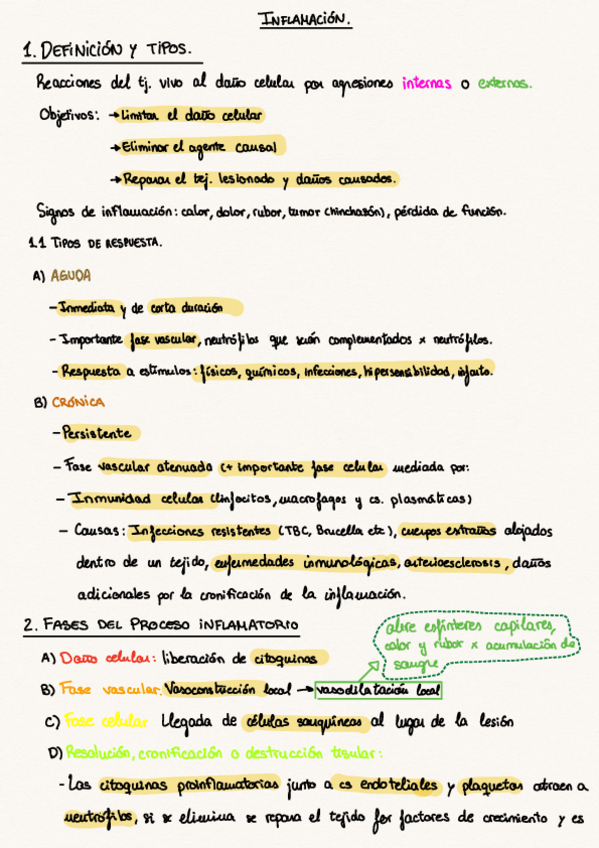 INFLAMACIÓN.
1. DEFINICIÓN Y TIPOS.
Reacciones del tj. vivo al daño celular por agresiones internas o externas.
Objetivos: → Limitar el daño celular
→ Eliminar el agente causal
→ Reparar el tej. lesionado y daños causados.
Signos de inflamación: calor, dolor, rubor, tumor (hinchazón), pérdida de función.
1.1 TIPOS DE RESPUESTA.
A) AGUDA
- Inmediata y de corta duración
- Importante fase vascular, neutrófilos que serán complementados x neutrófilos.
- Respuesta a estímulos: físicos, químicos, infecciones, hipersensibilidad, infarto.
B) CRÓNICA
- Persistente
- Fase vascular atenuada (+ importante fase celular mediada por:
- Inmunidad celular (linfocitos, macrofagos y cs. plasmáticas)
- Causas: Infecciones resistentes (TBC, Brucella etc), cuerpos extraños alojados
dentro de un tejido, enfermedades inmunológicas, arterioesclerosis, daños
adicionales por la cronificación de la inflamación.
2. FASES DEL PROCESO INFLAMATORIO
abre esfínteres capilares,
calor y rubor x acumulación de
sangre
A) Daño celular: liberación de citoquinas
B) Fase vascular: Vasoconstricción local → vasodilatación local
C) Fase celular Llegada de células sanguíneas al lugar de la lesión
D) Resolución, cronificación o destrucción tisular:
- Las citoquinas proinflamatorias junto a cs endoteliales y plaquetas atraen a
neutrófilos, si se elimina se repara el tejido fer factores de crecimiento y es